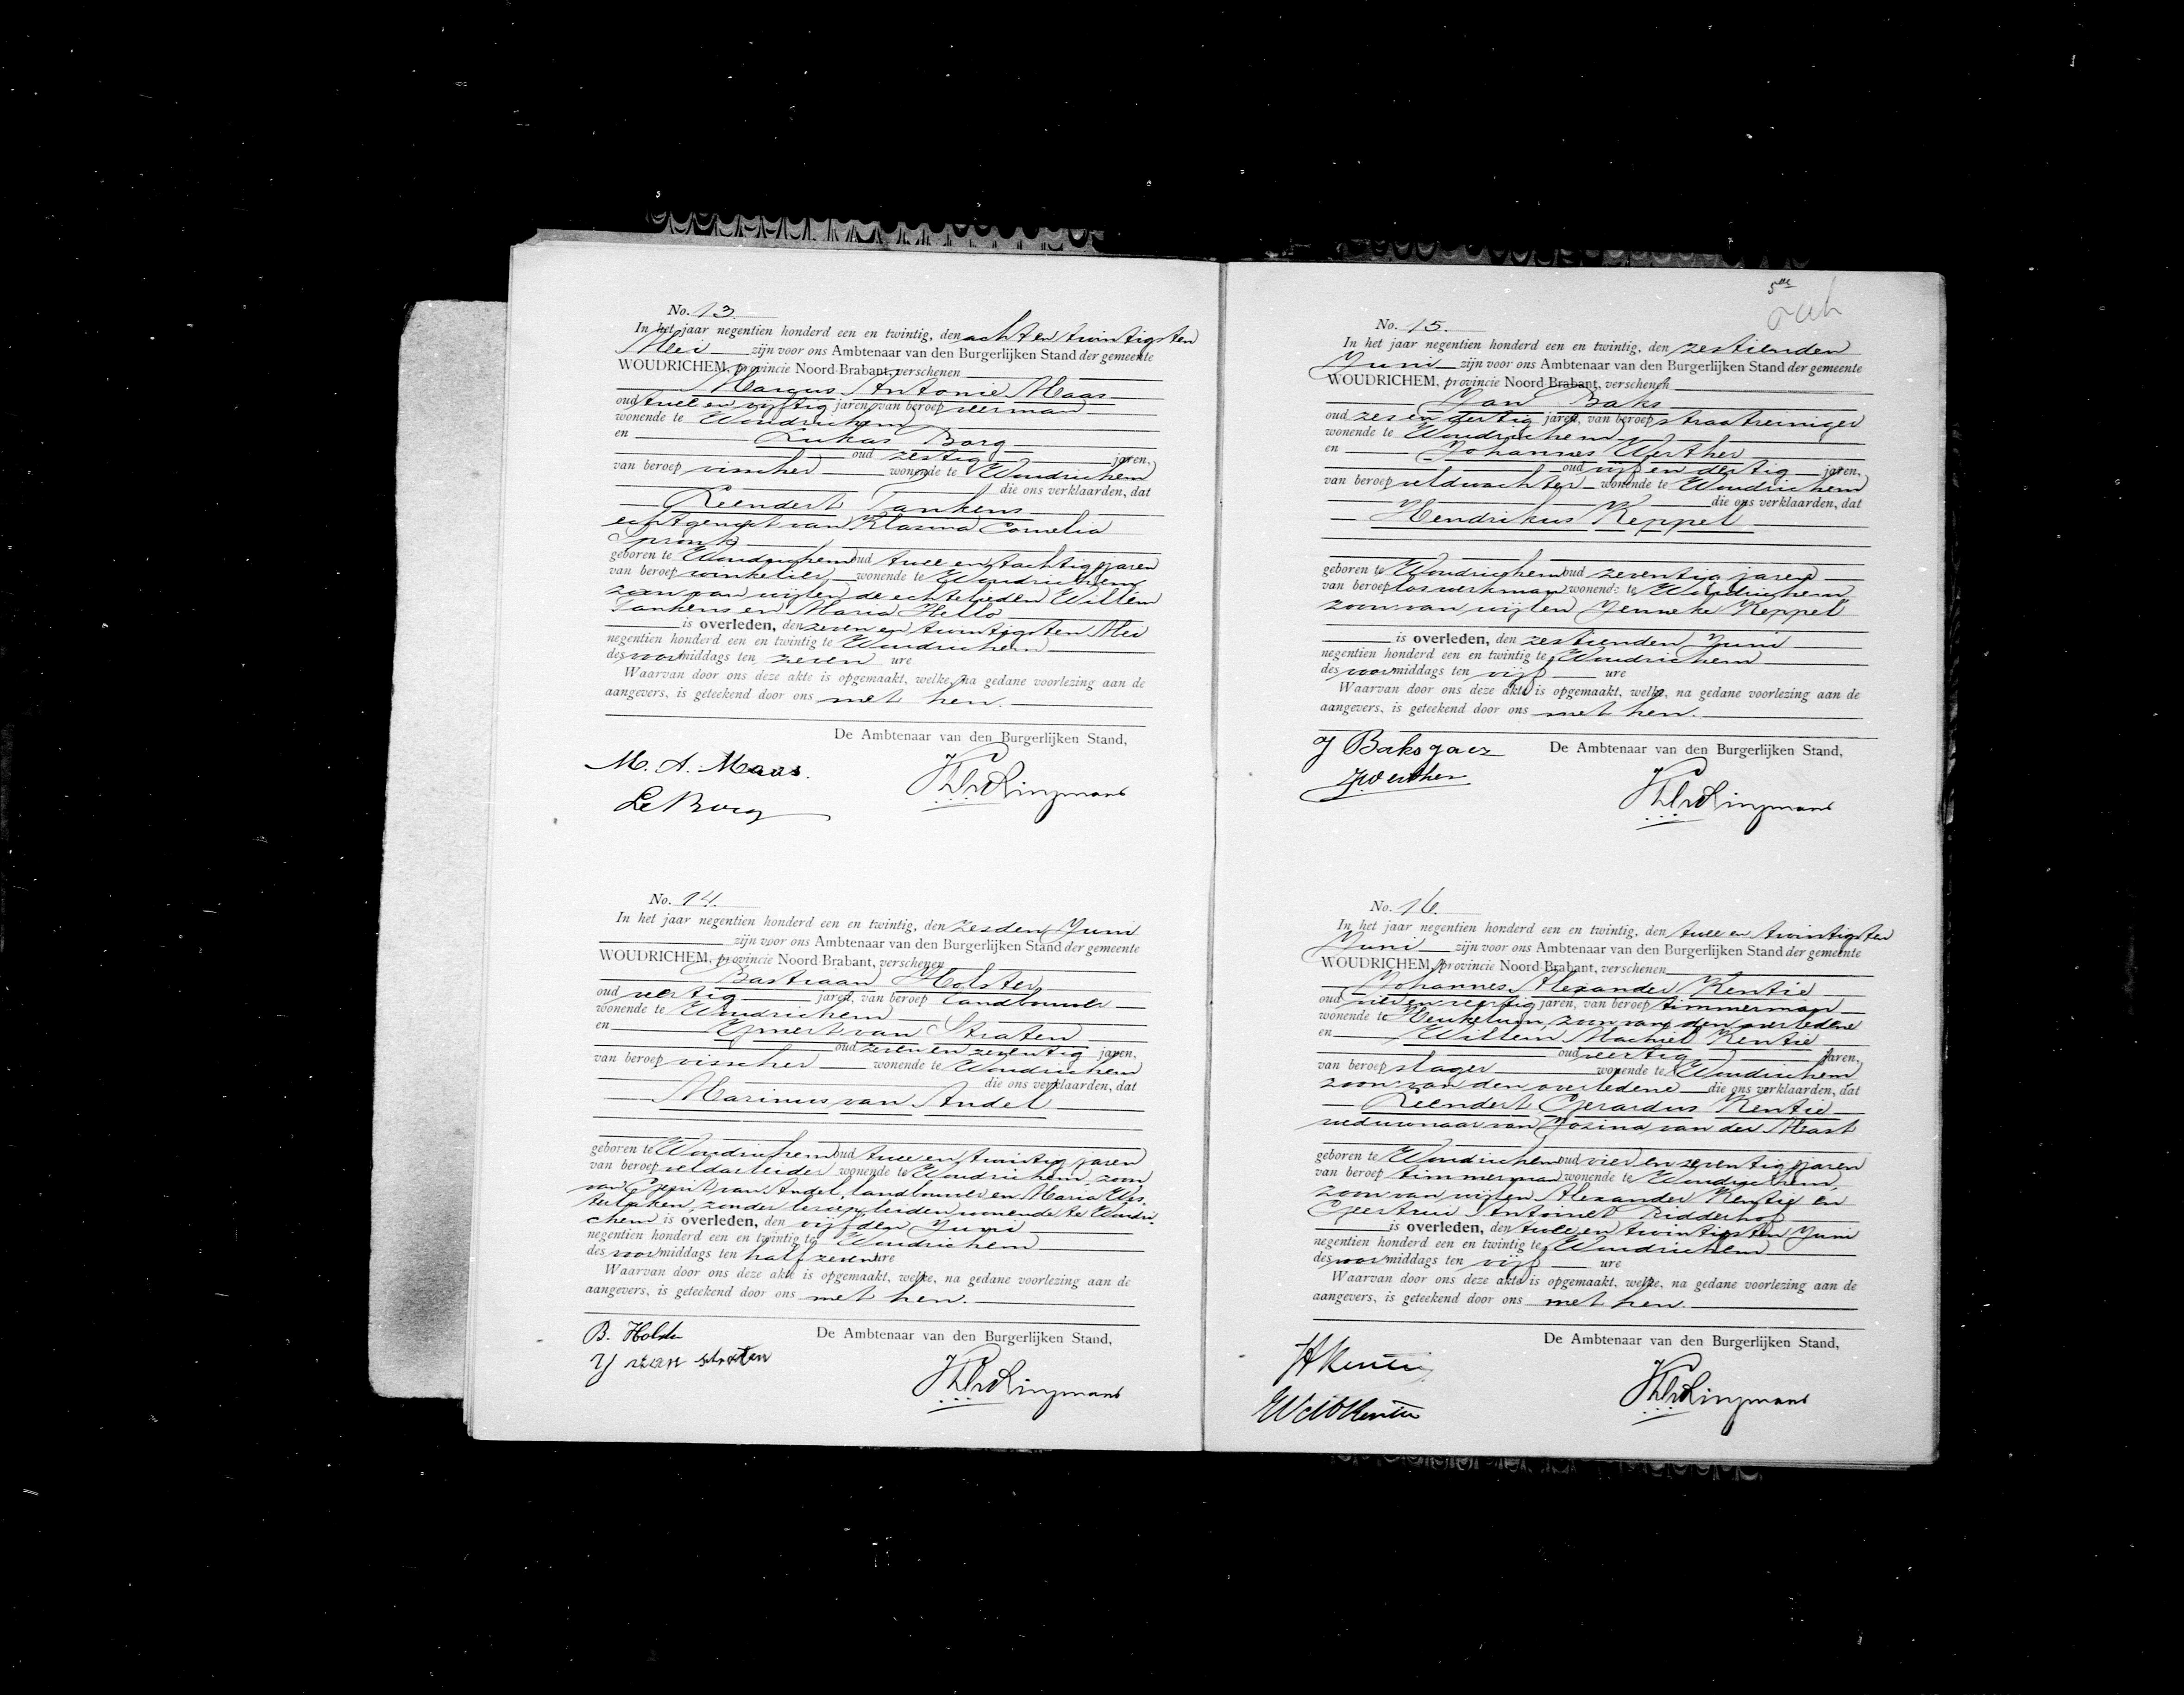 No. 13.
In het jaar negentien honderd een en twintig, den acht en twintigsten
Mei zijn voor ons Ambtenaar van den Burgerlijken Stand der gemeente
WOUDRICHEM, provincie Noord-Brabant, verschenen
Marcus Antonie Maas
oud twee en vijftig jaren, van beroep veerman
wonende te Woudrichem
en Lukas Borg
oud zestig jaren,
van beroep visscher wonende te Woudrichem
die ons verklaarden, dat
Leendert Tankens
echtgenoot van Klasina Cornelia
Spronk
geboren te Woudrichem oud twee en tachtig jaren
van beroep winkelier wonende te Woudrichem,
zoon van wijlen de echtelieden Willem
Tankens en Maria Hello
is overleden, den zeven en twintigsten Mei
negentien honderd een en twintig te Woudrichem
des voormiddags ten zeven ure
Waarvan door ons deze akte is opgemaakt, welke, na gedane voorlezing aan de
aangevers, is geteekend door ons met hen.
De Ambtenaar van den Burgerlijken Stand,
M. A. Maas.
L Borg
No. 14.
In het jaar negentien honderd een en twintig, den zesden Juni
zijn voor ons Ambtenaar van den Burgerlijken Stand der gemeente
WOUDRICHEM, provincie Noord-Brabant, verschenen
Bastiaan Holster
oud veertig jaren, van beroep landbouwer
wonende te Woudrichem
en IJmert van Straten
oud zeven en zeventig jaren,
van beroep visscher wonende te Woudrichem
die ons verklaarden, dat
Marinus van Andel
geboren te Woudrichem oud twee en twintig jaren
van beroep veldarbeider wonende te Woudrichem, zoon
van Gerrit van Andel, landbouwer en Maria Wes
terlaken, zonder beroep, beiden wonende te Woudri-
chem is overleden, den vijfden Juni
negentien honderd een en twintig te Woudrichem
des voormiddags ten half zeven ure
Waarvan door ons deze akte is opgemaakt, welke, na gedane voorlezing aan de
aangevers, is geteekend door ons met hen.
B. Holster De Ambtenaar van den Burgerlijken Stand,
IJ van straten
5de
No. 15.
In het jaar negentien honderd een en twintig, den zestienden
Juni zijn voor ons Ambtenaar van den Burgerlijken Stand der gemeente
WOUDRICHEM, provincie Noord-Brabant, verschenen
Jan Baks
oud zes en dertig jaren, van beroep straatreiniger
wonende te Woudrichem
en Johannes Werther
oud vijf en dertig jaren,
van beroep veldwachter wonende te Woudrichem
die ons verklaarden, dat
Hendrikus Keppel
geboren te Woudrichem oud zeventig jaren
van beroep los werkman wonende te Woudrichem,
zoon van wijlen Jenneke Keppel
is overleden, den zestienden Juni
negentien honderd een en twintig te Woudrichem
des voormiddags ten vijf ure
Waarvan door ons deze akte is opgemaakt, welke, na gedane voorlezing aan de
aangevers, is geteekend door ons met hen.
J Baks De Ambtenaar van den Burgerlijken Stand,
JWerther
No. 16.
In het jaar negentien honderd een en twintig, den twee en twintigsten
Juni zijn voor ons Ambtenaar van den Burgerlijken Stand der gemeente
WOUDRICHEM, provincie Noord-Brabant, verschenen
Johannes Alexander Kentie
oud vier en veertig jaren, van beroep timmerman
wonende te Heukelum, zoon van den overledene
en Willem Machiel Kentie
oud veertig jaren,
van beroep slager wonende te Woudrichem
zoon van den overledene die ons verklaarden, dat
Leendert Gerardus Kentie
weduwnaar van Jozina van der Mast
geboren te Woudrichem oud vier en zeventig jaren
van beroep timmerman wonende te Woudrichem,
zoon van wijlen Alexander Kentie en
Geertrui Antoinet Ridderhof
is overleden, den twee en twintigsten Juni
negentien honderd een en twintig te Woudrichem
des voormiddags ten vijf ure
Waarvan door ons deze akte is opgemaakt, welke, na gedane voorlezing aan de
aangevers, is geteekend door ons met hen.
De Ambtenaar van den Burgerlijken Stand,
JAKentie
WMKentie